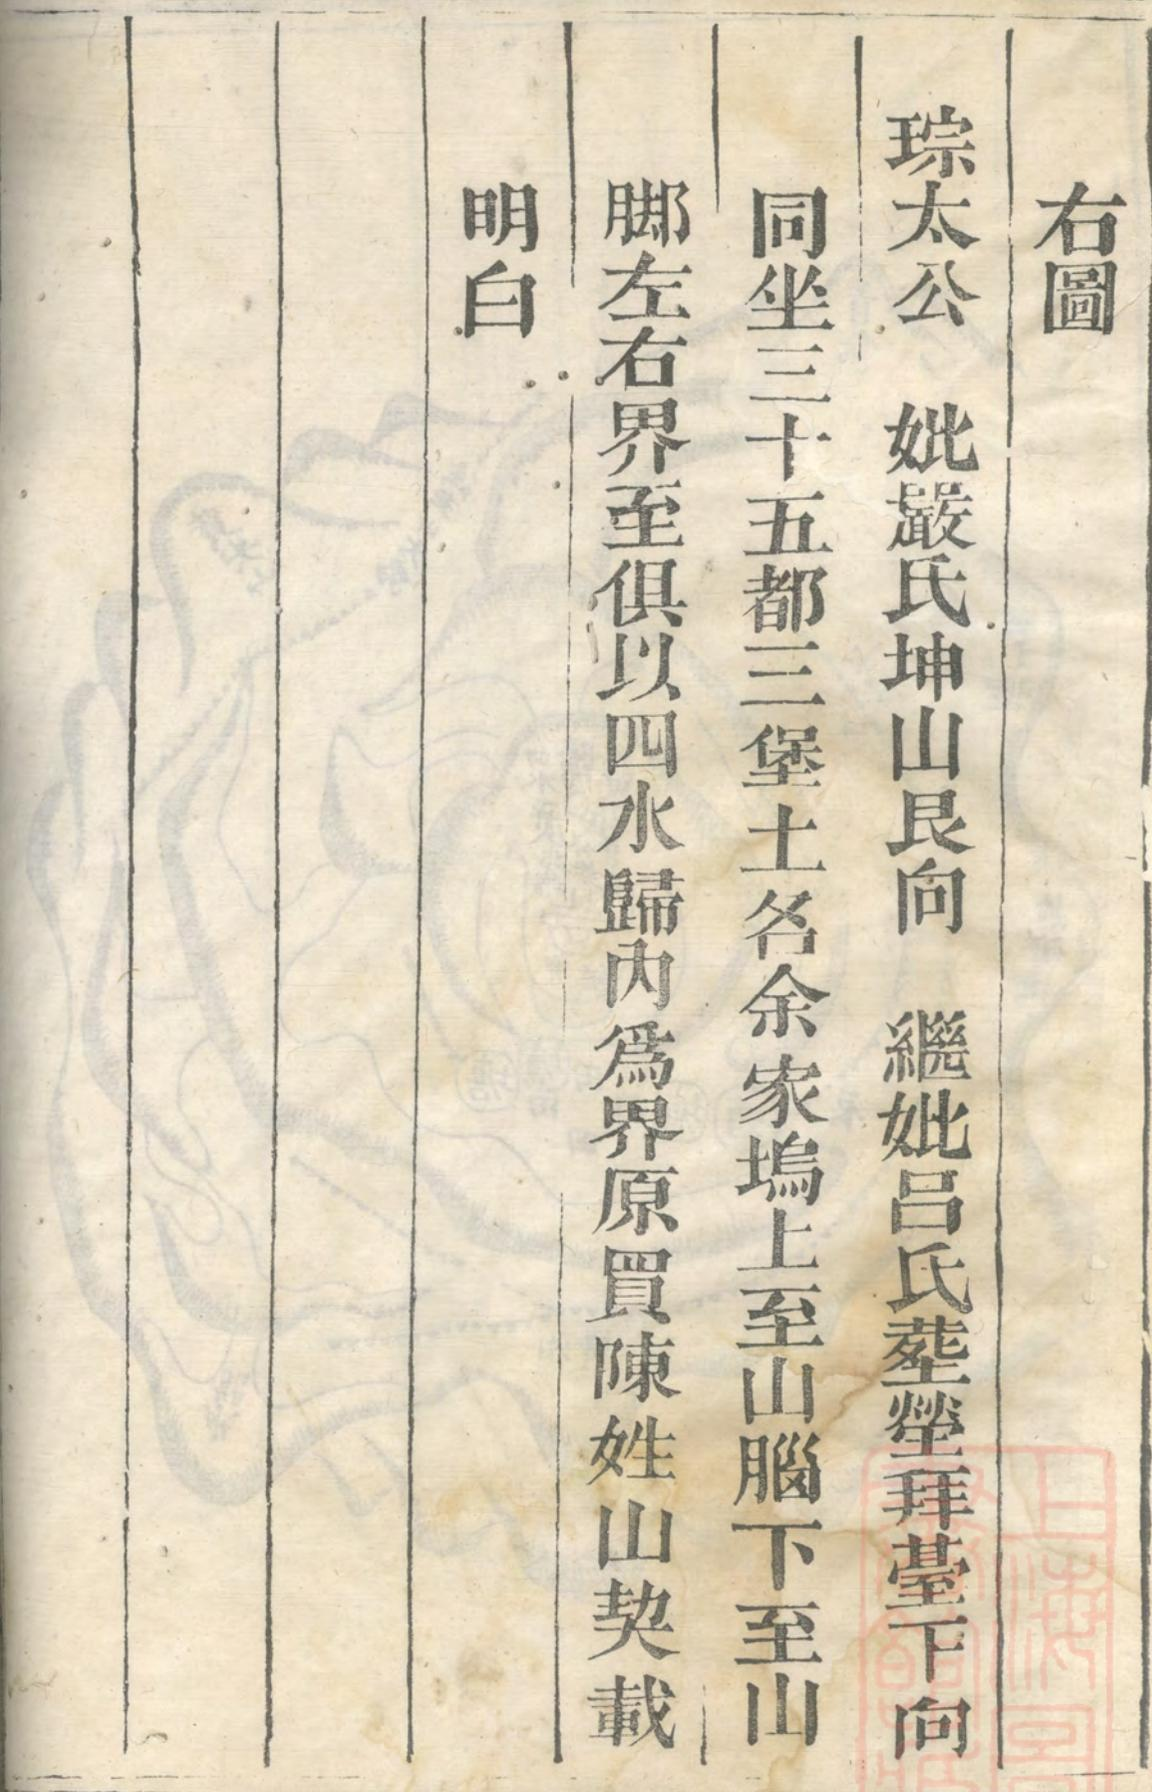 右圖
琮太公　妣嚴氏坤山艮向　繼妣呂氏塟塋拜臺下向
同坐三十五都三堡土名余家塢上至山腦下至山
脚左右界至俱以四水歸內爲界原買陳姓山契載
明白
上海圖